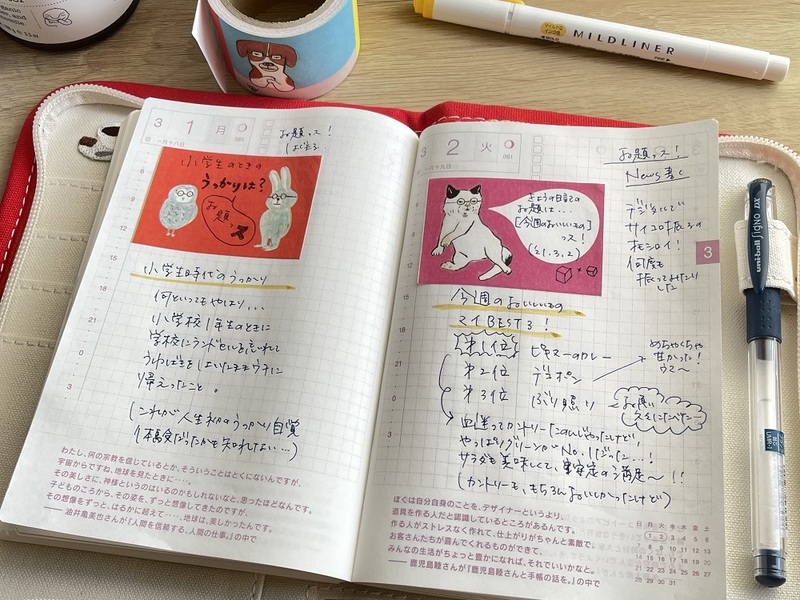 MILDLINER
uni-ball SIGNO DX
3 1 月
(060)
旧・一月十八日
お題っス!
小学生のときの
うっかりは?
お題っス
小学生時代のうっかり
何といってもやはり…
小学校1年生のときに
学校にランドセルを忘れて
帰えったこと。
(これが人生初のうっかり自覚
わたし、何の宗教を信じているとか、そういうことはとくにないんですが、
宇宙からですね、地球を見たときに……。
その美しさに、神様というのはいるのかもしれないなと、思ったほどなんです。
子どものころから、その姿を、ずっと想像してきたのですが、
その想像をずっと、はるかに超えて……、地球は、美しかったんです。
——油井亀美也さんが『人間を信頼する、人間の仕事。』の中で
3 2 火
(061)
旧・一月十九日
お題っス!
News書く
デジタルで
サイコロ振るの
オモシロイ!
何度も
振ってみたり
した
3
きょうの日記の
お題は…
[今週のおいしいもの]
っス!
(21.3.2)
今週のおいしいもの
マイBEST3!
第1位 ピキマーのカレー
第2位 デコポン
第3位 ぶり照り
めちゃくちゃ
甘かった!
ウマ〜
やっぱりグリーンがNo.1だった…!
サラダも美味しくて、安定の満足〜!!
(カントリーも、もちろんおいしかったけど)
ぼくは自分自身のことを、デザイナーというより、
道具を作る人だと認識しているところがあるんです。
作る人がストレスなく作れて、仕上がりがちゃんと素敵で、
お客さんたちが喜んでくれるものができて、
みんなの生活がちょっと豊かになれば、それでいいかなと。
——鹿児島睦さんが『鹿児島睦さんと手帳の話を。』の中で
日 月 火 水 木 金 土
1 2 3 4 5 6
7 8 9 10 11 12 13
14 15 16 17 18 19 20
21 22 23 24 25 26 27
28 29 30 31